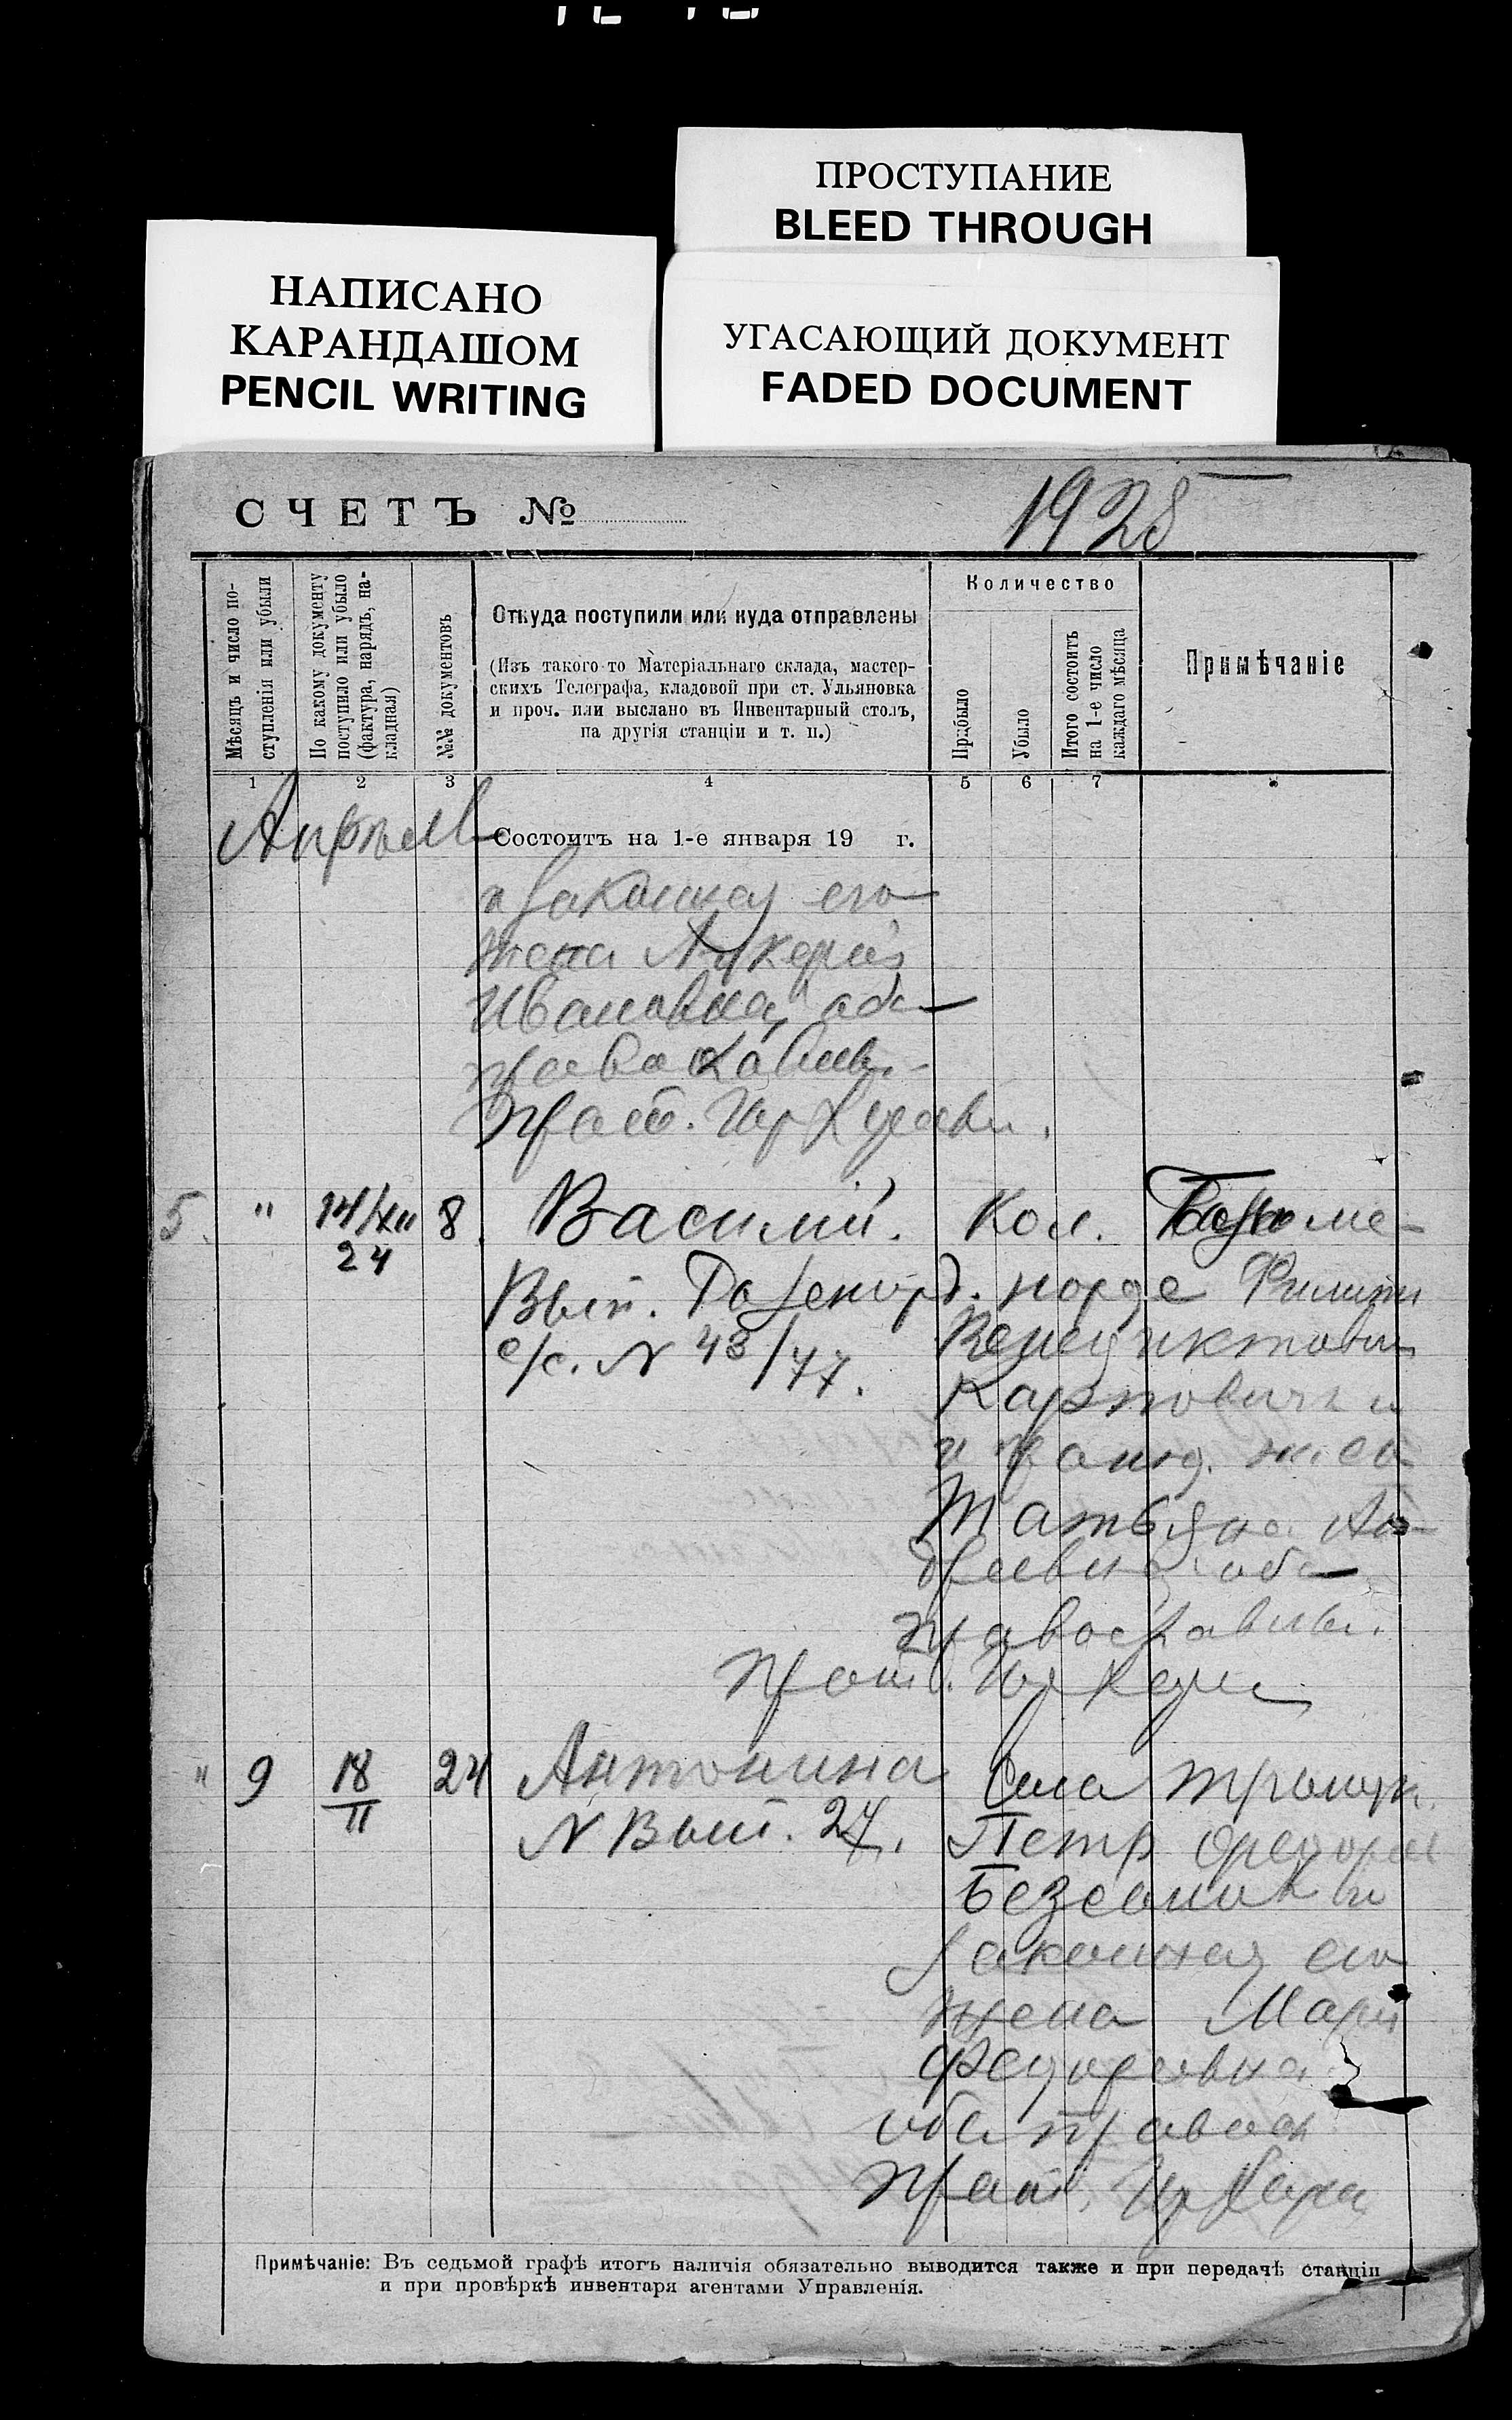 ПРОСТУПАНИЕ
BLEED THROUGH
НАПИСАНО
КАРАНДАШОМ
PENCIL WRITING
УГАСАЮЩИЙ ДОКУМЕНТ
FADED DOCUMENT
СЧЕТЪ №
1925
Мѣсяцъ и число по-
ступленія или убыли
По какому документу
поступило или убыло
(фактура, нарядъ, на-
кладная)
№№ документовъ
Откуда поступили или куда отправлены
(Изъ такого-то Матеріальнаго склада, мастер-
скихъ Телеграфа, кладовой при ст. Ульяновка
и проч. или выслано въ Инвентарный столъ,
на другія станціи и т. п.)
Количество
Прибыло
Убыло
Итого состоитъ
на 1-е число
каждаго мѣсяца
Примѣчаніе
1 2 3 4 5 6 7
Апрель
Состоитъ на 1-е января 19 г.
и законная его
жена
Ивановна, оба
православн.
Прот.
5. " 14/XII 24 8. Василий. Кол.
Вып. норде Филипп
с/с. N 43/77. Венедиктович
Карпович и
и жена
Татьяна Ан-
дреевна оба
православн.
Прот.
" 9 18/II 24 Антонина Села
N Вып. 27. Петр
законная его
жена Мария
Федоровна
оба правосл.
Прот.
Примѣчаніе: Въ седьмой графѣ итогъ наличія обязательно выводится также и при передачѣ станціи
и при провѣркѣ инвентаря агентами Управленія.